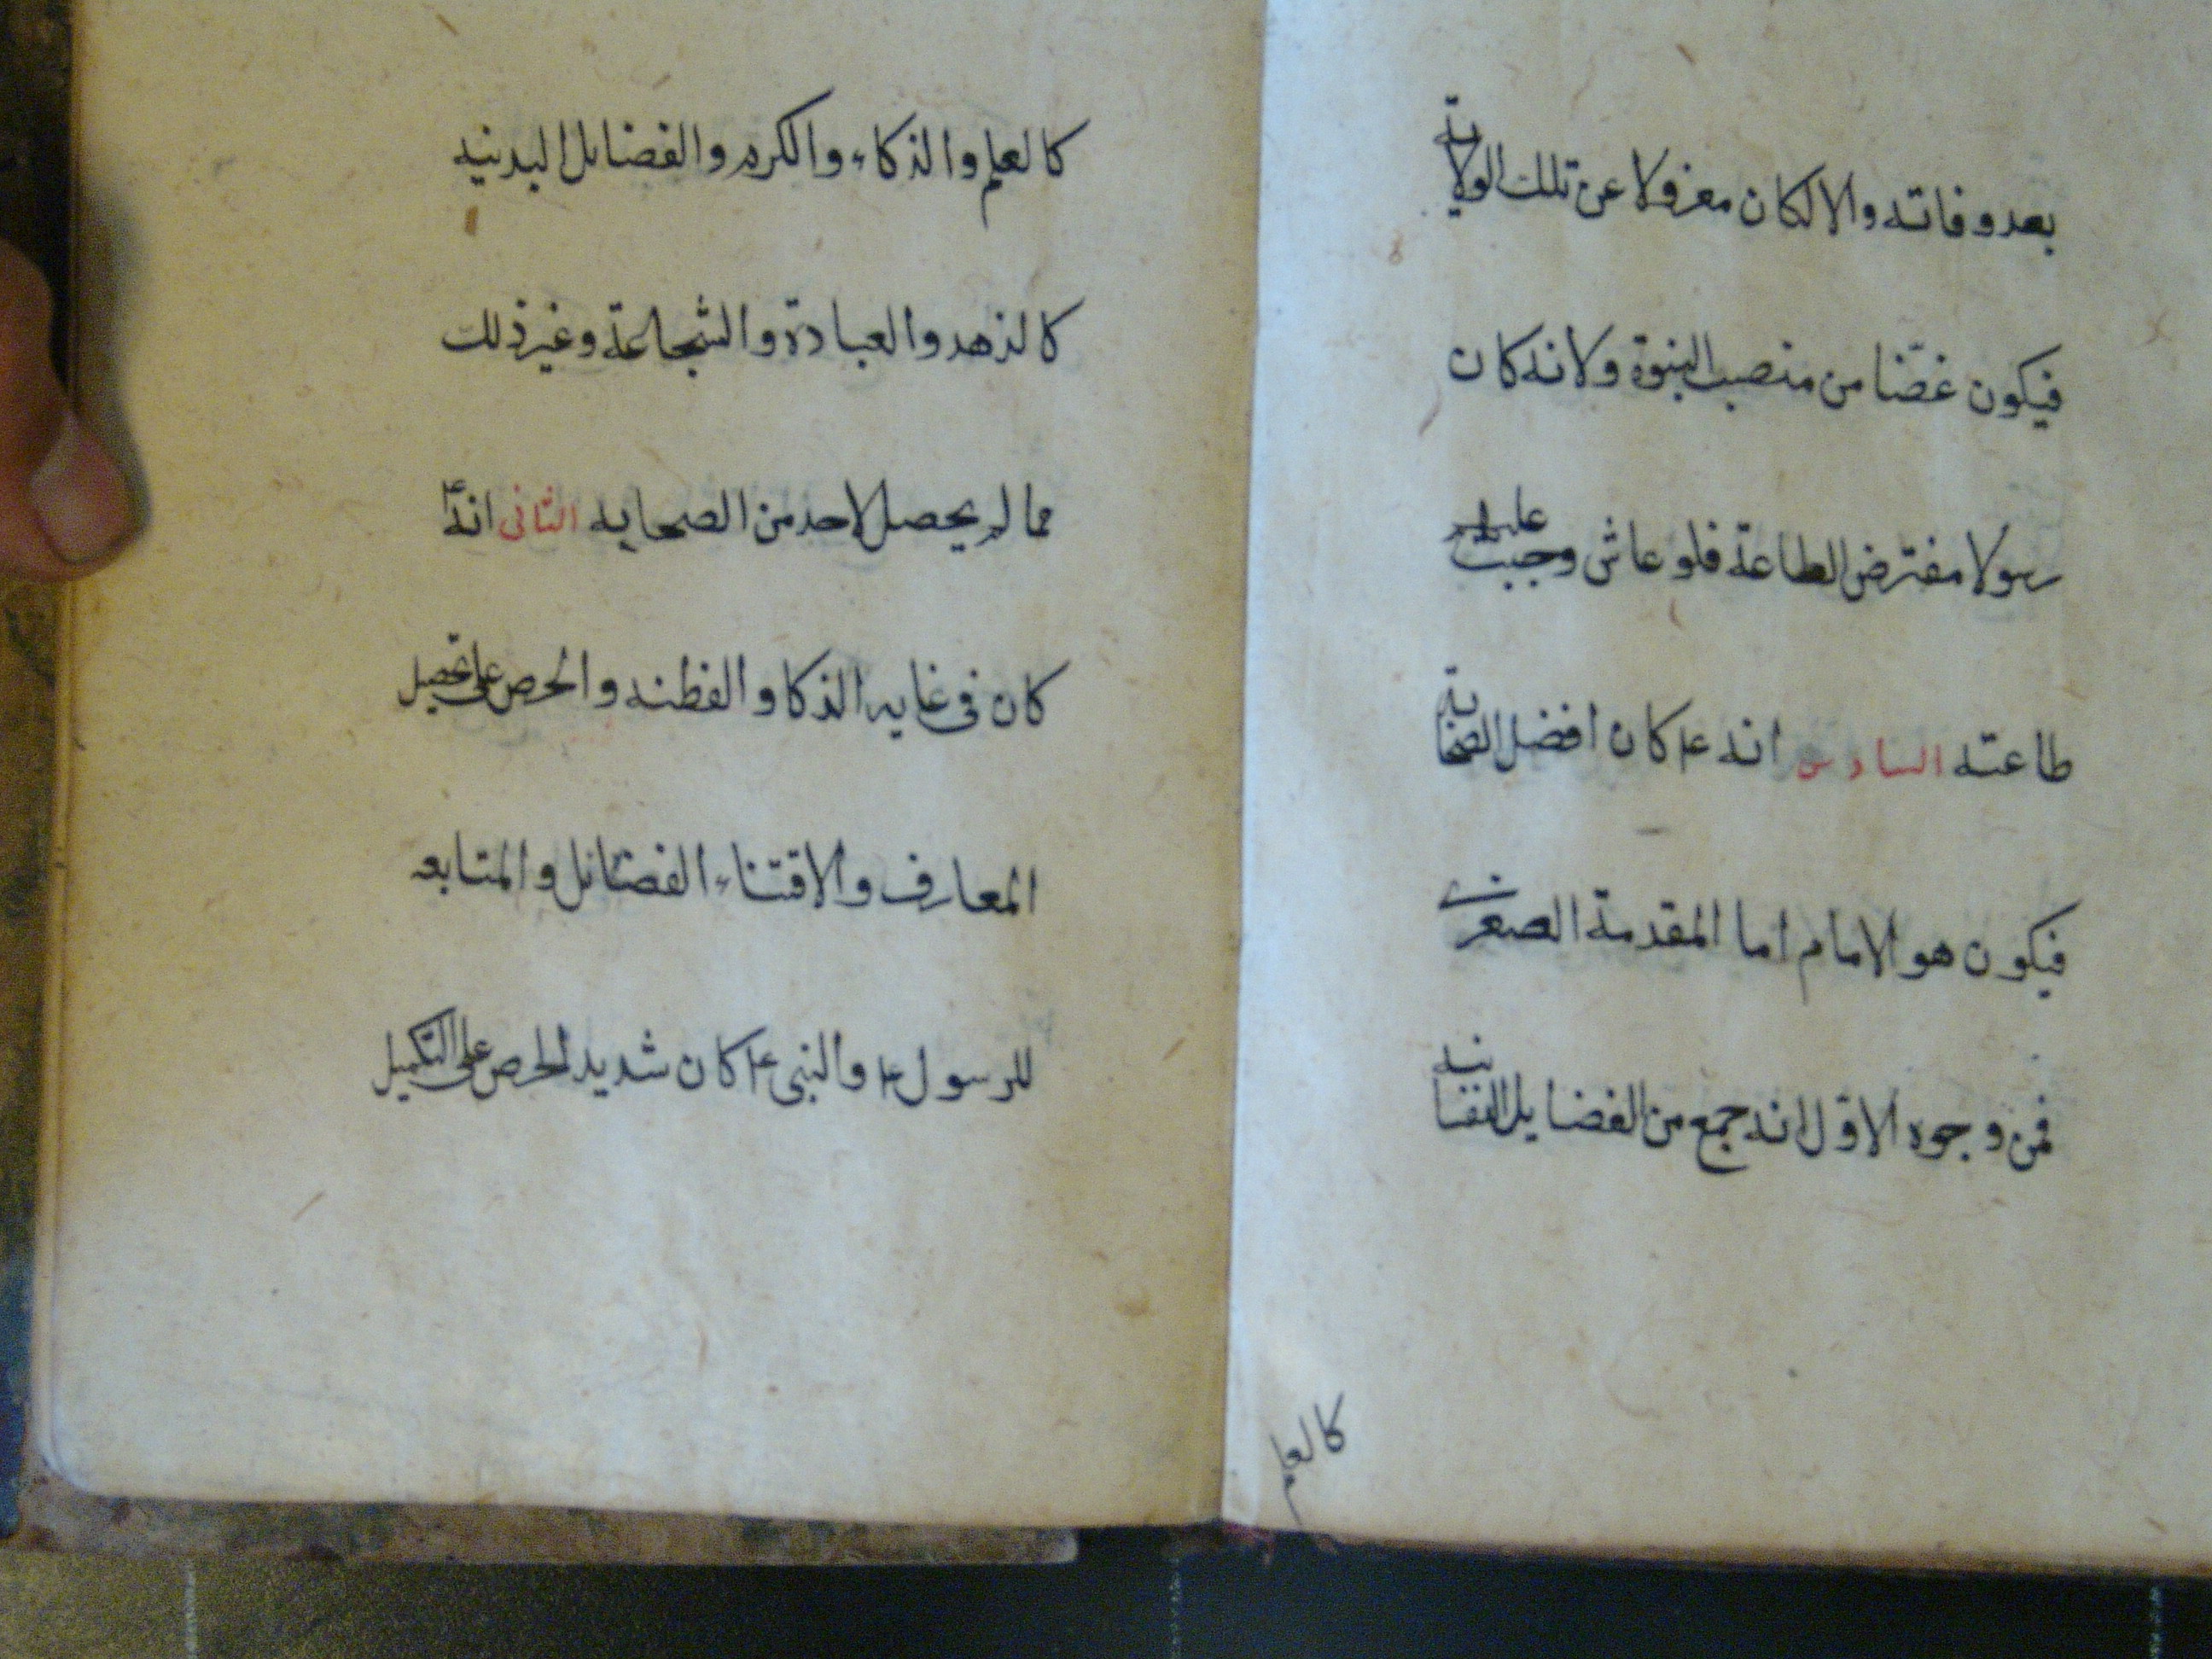 بعد وفاته والا لكان معزولا عن تلك الولاية
فيكون غضّا من منصب النبوة ولانه كان
رسولا مفترض الطاعة فلو عاش وجبت عليهم
طاعته السادس انه ع‍ كان افضل الصحابة
فيكون هو الامام اما المقدمة الصغرى
فمن وجوه الاوّل انه جمع من الفضايل النفسانيه
كالعلم
كالعلم والذكاء والكرم والفضائل البدنيه
كالزهد والعبادة والشجاعة وغير ذلك
مما لم يحصل لاحد من الصحابه الثانى انه ع‍
كان فى غايه الذكا والفطنه والحرص على تحصيل
المعارف والاقتناء الفضائل والمتابعه
للرسول ع‍ والنبى ع‍ كان شديد الحرص على التكميل